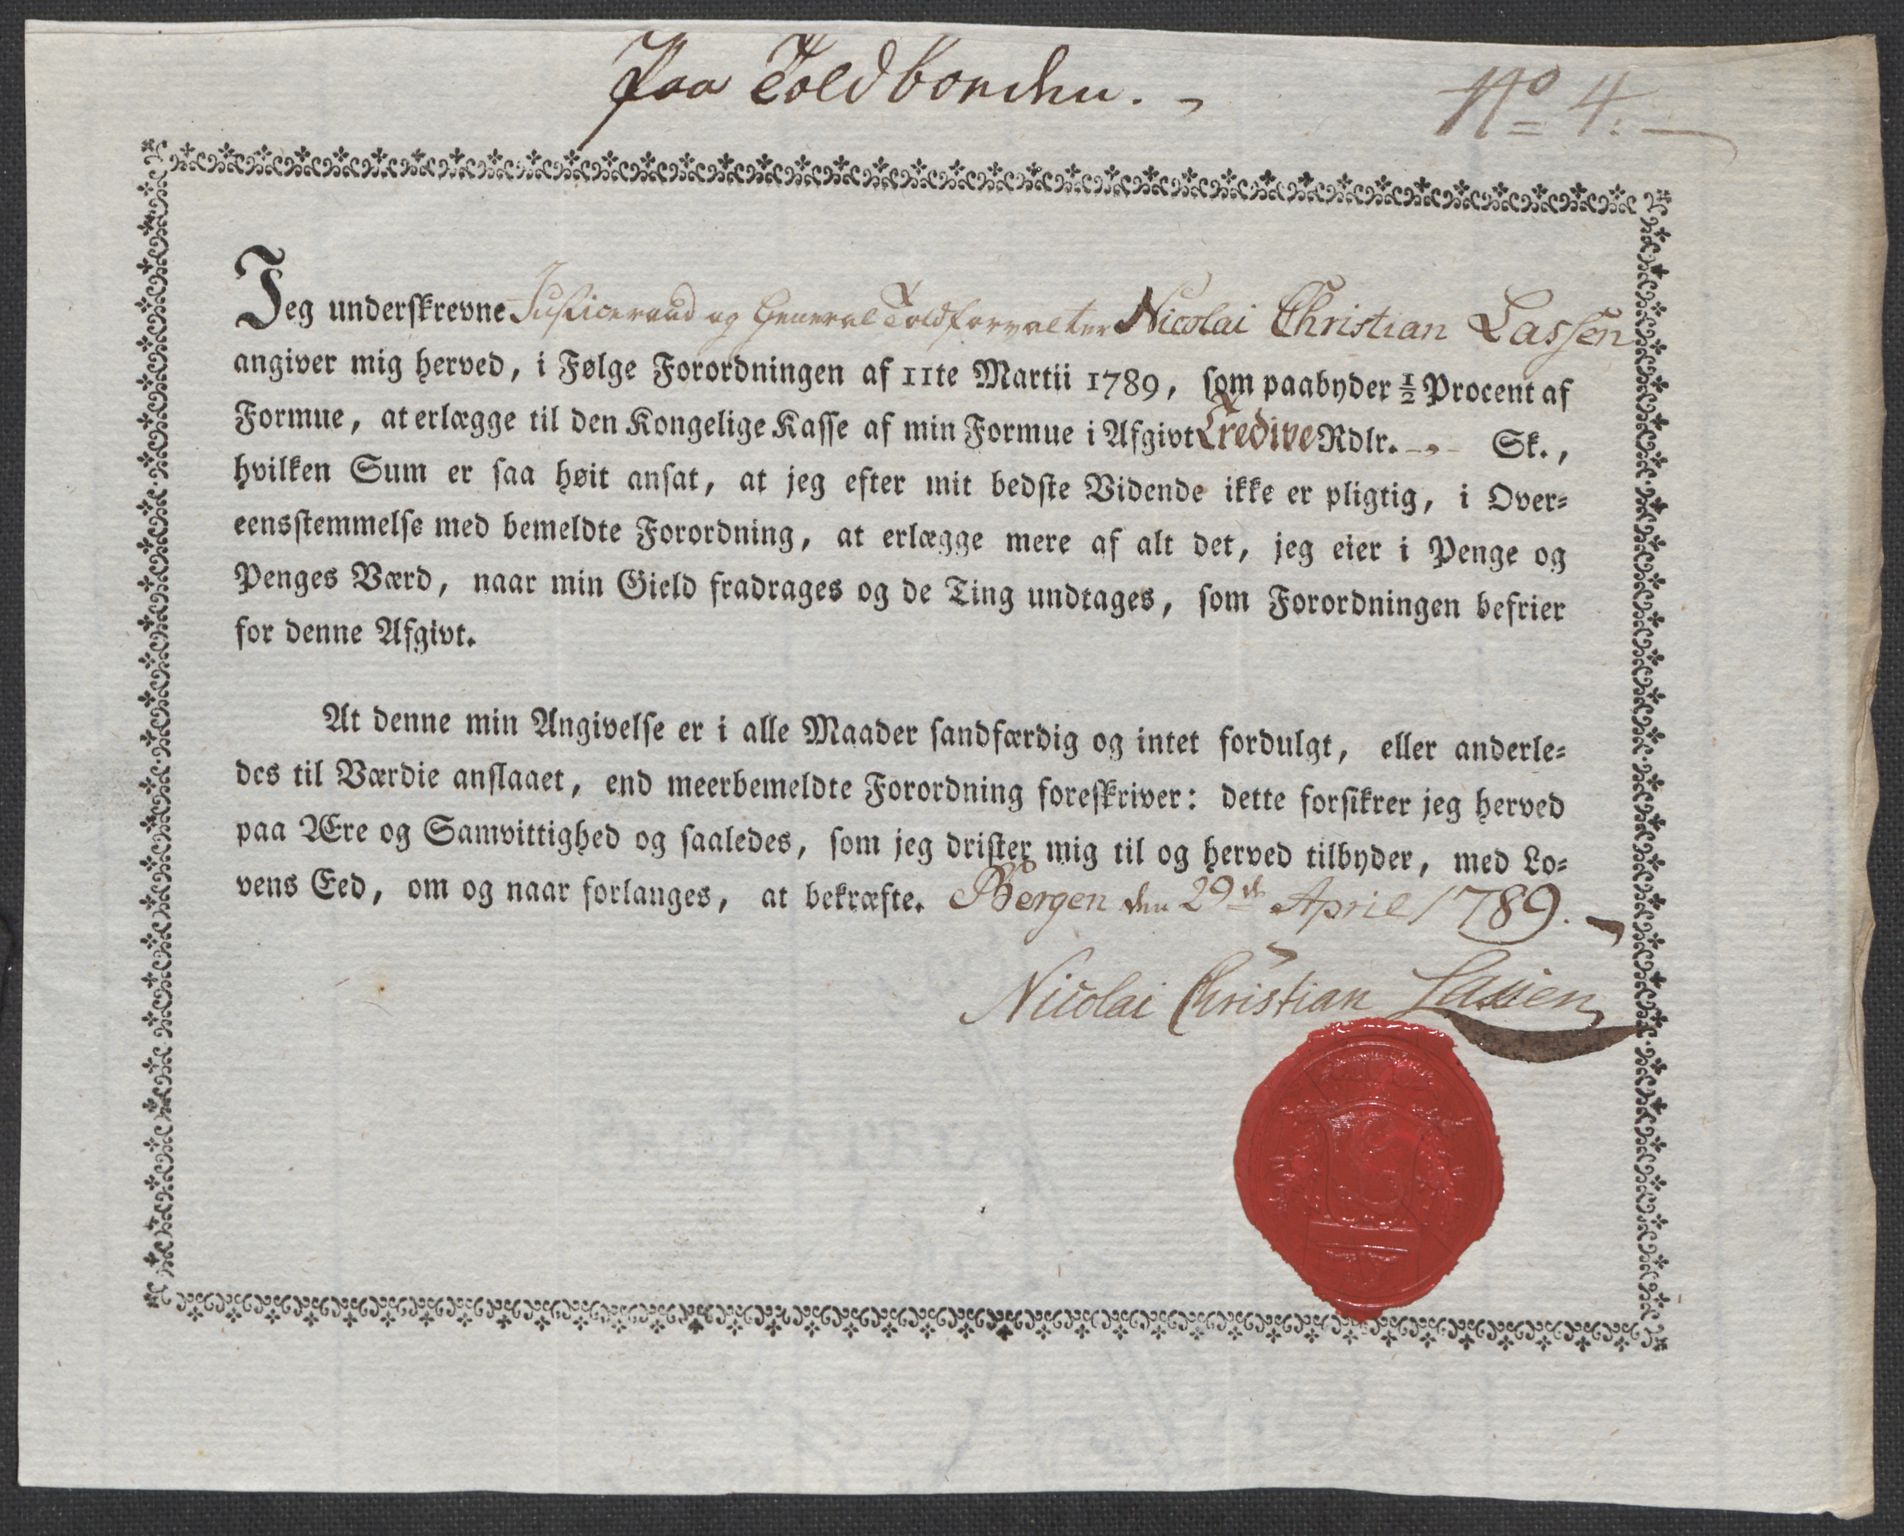 Paa Toldboeden. N<sup>o</sup> 4.
Jeg underskrevne Justiceraad og General Toldforvalter Nicolai Christian Lassen
angiver mig herved, i Følge Forordningen af 11te Martii 1789, som paabyder ½ Procent af
Formue, at erlægge til den Kongelige Kasse af min Formue i Afgivt Tredive Rdlr. - „ - Sk.,
hvilken Sum er saa høit ansat, at jeg efter mit bedste Vidende ikke er pligtig, i Over-
eensstemmelse med bemeldte Forordning, at erlægge mere af alt det, jeg eier i Penge og
Penges Værd, naar min Gield fradrages og de Ting undtages, som Forordningen befrier
for denne Afgivt.
At denne min Angivelse er i alle Maader sandfærdig og intet fordulgt, eller anderle-
des til Værdie anslaaet, end meerbemeldte Forordning foreskriver: dette forsikrer jeg herved
paa Ære og Samvittighed og saaledes, som jeg drister mig til og herved tilbyder, med Lo-
vens Eed, om og naar forlanges, at bekræfte. Bergen den 29de April 1789.
Nicolai Christian Lassen